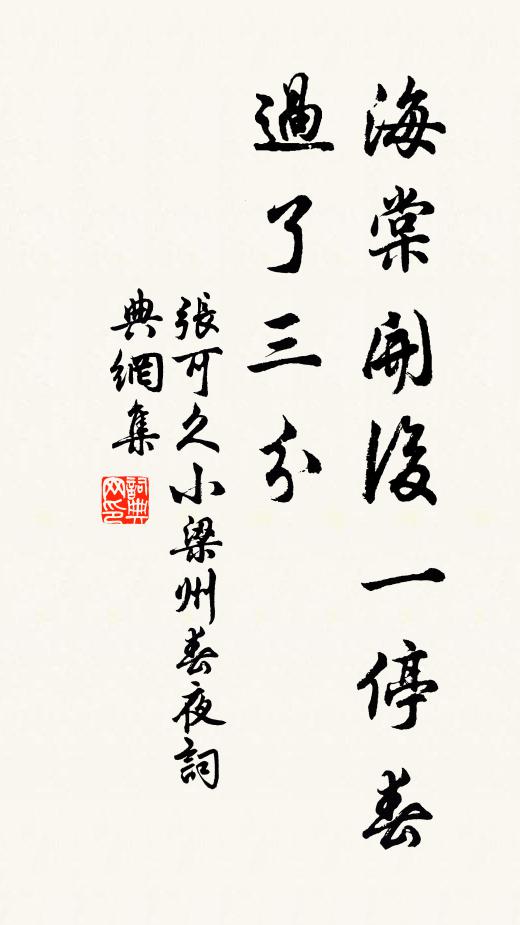 海棠開後一停春
過了三分
張可久小梁州春夜詞
典網集
詞典
网印